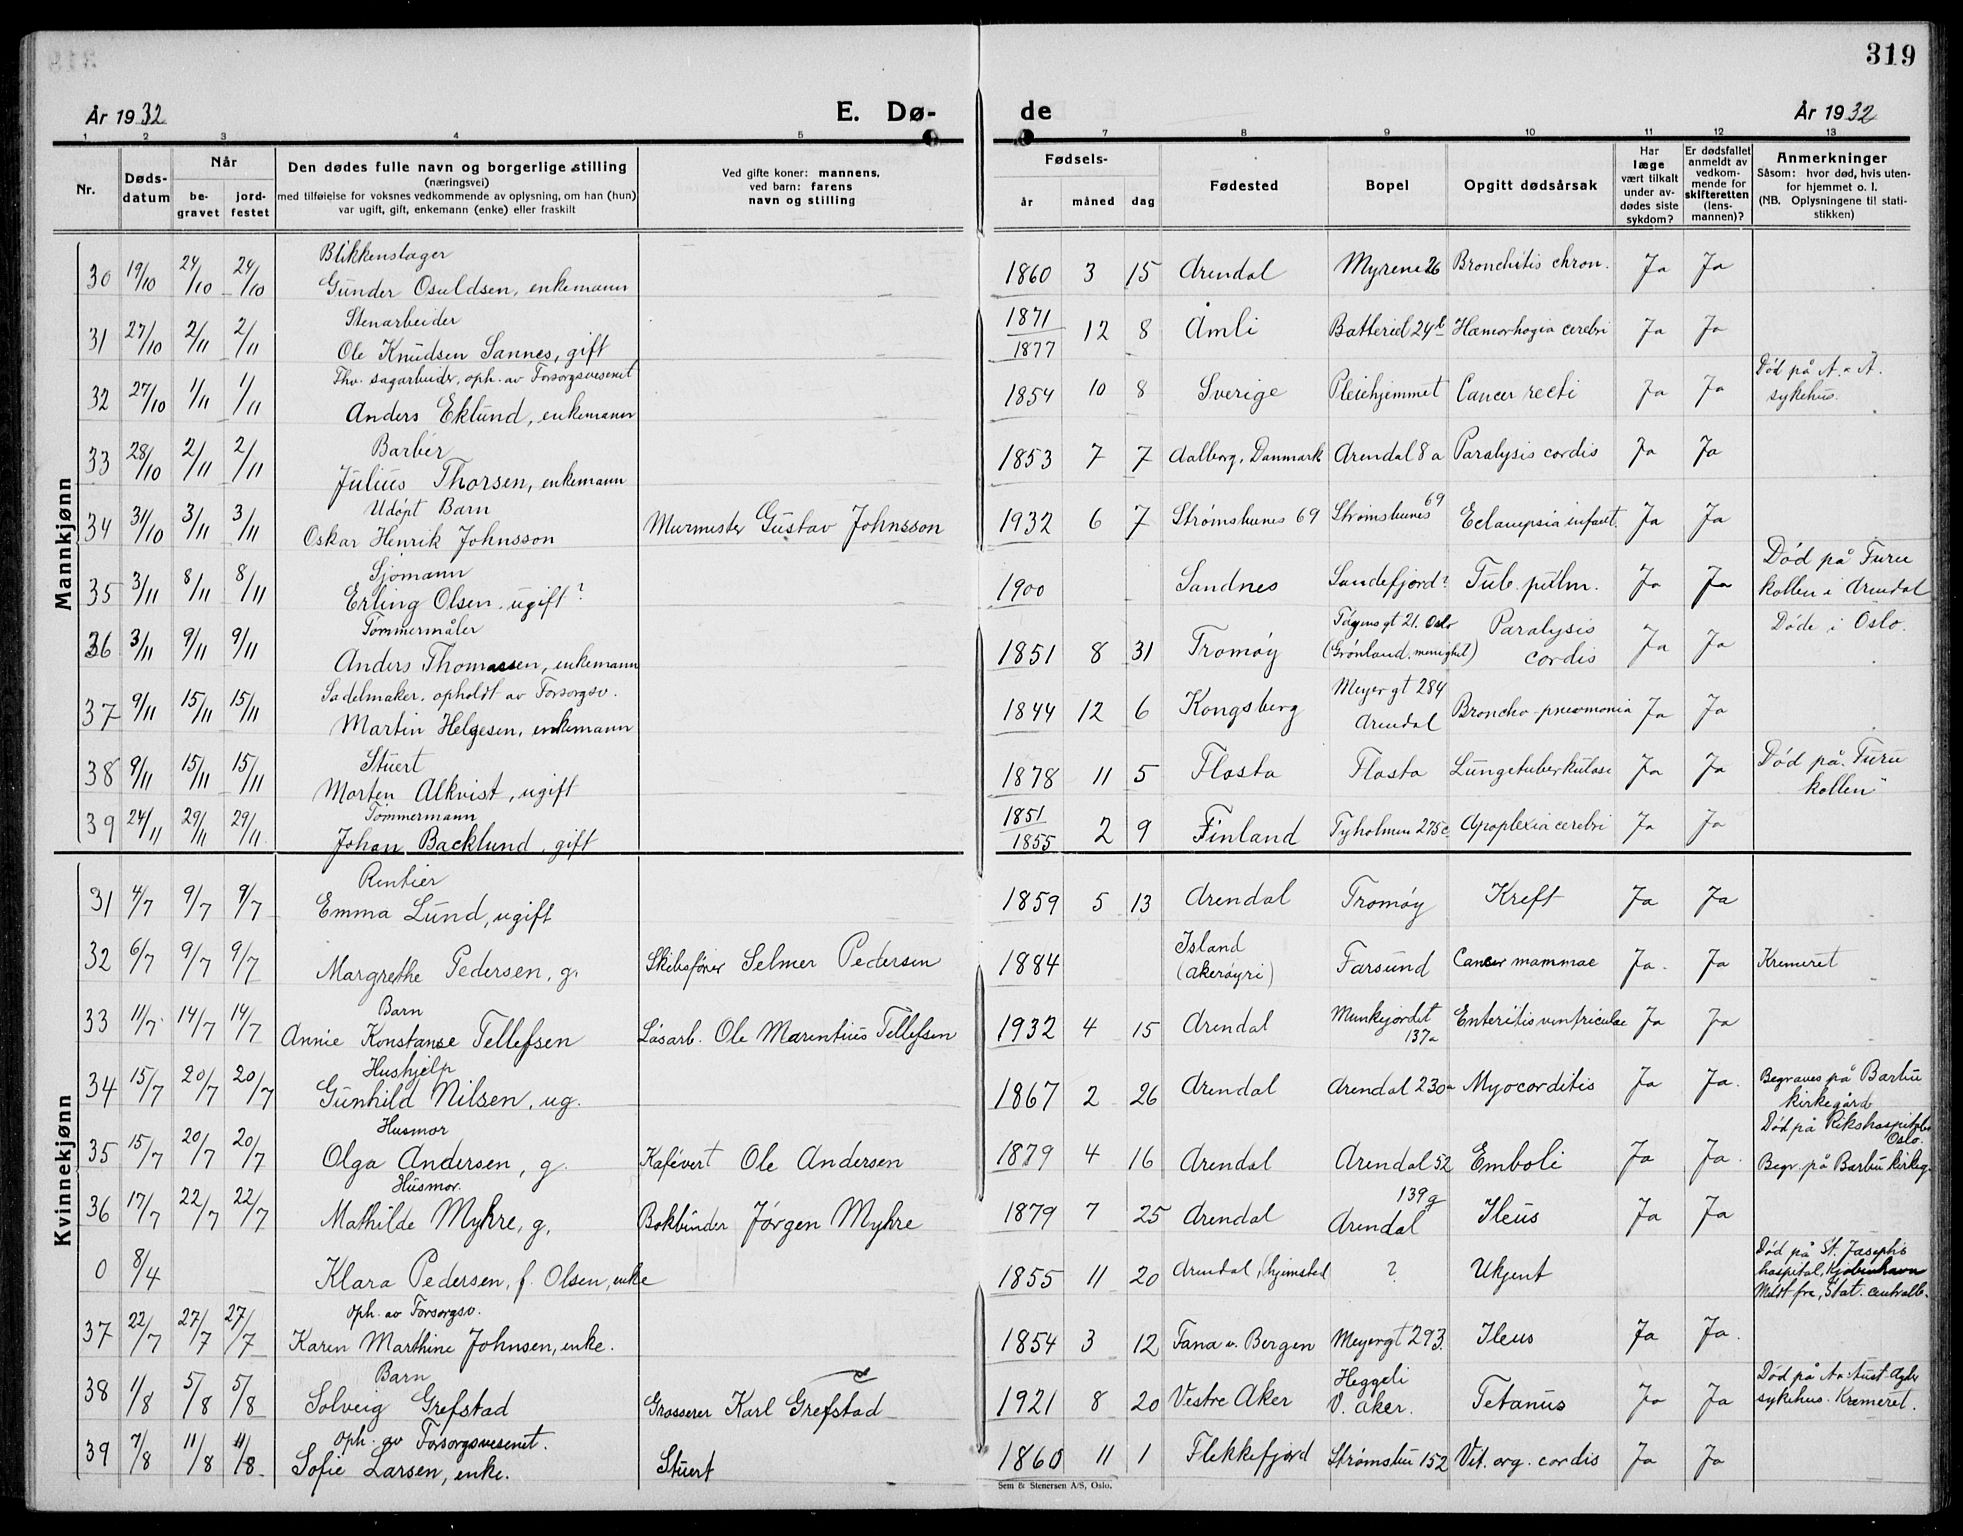 319
År 1932 E. Dø- de År 1932
1 2 3 4 5 7 8 9 10 11 12 13
Nr. Døds-datum Når be-gravet jord-festet Den dødes fulle navn og borgerlige stilling (næringsvei) med tilføielse for voksnes vedkommende av oplysning, om han (hun) var ugift, gift, enkemann (enke) eller fraskilt Ved gifte koner: mannens, ved barn: farens navn og stilling Fødsels- år måned dag Fødested Bopel Opgitt dødsårsak Har læge vært tilkalt under av-dødes siste sykdom? Er dødsfallet anmeldt av vedkom-mende for skifteretten (lens-mannen)? Anmerkninger Såsom: hvor død, hvis uten-for hjemmet o. l. (NB. Oplysningene til stati-stikken)
Mannkjønn
30 19/10 24/10 24/10 Blikkenslager Gunder Osuldsen, enkemann 1860 3 15 Arendal Myrene 26 Bronchitis chron. Ja Ja
31 27/10 2/11 2/11 Stenarbeider Ole Knudsen Sannes, gift 1871 1877 12 8 Åmli Batteriet 24b Hæmorhagia cerebri Ja Ja
32 27/10 1/11 1/11 Fhv. sagarbeider, oph. av Forsorgsvesenet Anders Eklund, enkemann 1854 10 8 Sverige Pleiehjemmet Cancer recti Ja Ja Død på A. A. sykehus.
33 28/10 2/11 2/11 Barbér Julius Thorsen, enkemann 1853 7 7 Aalborg, Danmark Arendal 8a Paralysis cordis Ja Ja
34 31/10 3/11 3/11 Udøpt Barn Oskar Henrik Johnsson Murmester Gustav Johnsson 1932 6 7 Strømsbunes 69 Strømsbunes 69 Eclampsia infant. Ja Ja
35 3/11 8/11 8/11 Sjømann Erling Olsen, ugift? 1900 Sandnes Sandefjord? Tub. pulm. Ja Ja Død på Furukollen i Arendal
36 3/11 9/11 9/11 Tømmermåler Anders Thomassen, enkemann 1851 8 31 Tromøy Tøyengt 21. Oslo (Grønland. menighet) Paralysis cordis Ja Ja Døde i Oslo.
37 9/11 15/11 15/11 Sadelmaker, opholdt av Forsorgsv. Martin Helgesen, enkemann 1844 12 6 Kongsberg Meyergt 284 Arendal Broncho-pneumonia Ja Ja
38 9/11 15/11 15/11 Stuert Morten Alkvist, ugift 1878 11 5 Flosta Flosta Lungetuberkulose Ja Ja Død på "Furukollen"
39 24/11 29/11 29/11 Tømmermann Johan Backlund, gift 1851 1855 2 9 Finland Tyholmen 275c Apoplexia cerebri Ja Ja
Kvinnekjønn
31 4/7 9/7 9/7 Rentier Emma Lund, ugift 1859 5 13 Arendal Tromøy Kreft Ja Ja
32 6/7 9/7 9/7 Margrethe Pedersen, g. Skibsfører Selmer Pedersen 1884 Island (Akerøyri) Farsund Cancer mammae Ja. Ja Kremert
33 11/7 14/7 14/7 Barn Annie Konstanse Tellefsen Løsarb. Ole Marentius Tellefsen 1932 4 15 Arendal Munkejordet 137a Enteritis ventriculae Ja Ja
34 15/7 20/7 20/7 Hushjelp Gunhild Nilsen, ug. 1867 2 26 Arendal Arendal 230a Myocorditis Ja Ja. Begraves på Barbu kirkegård
35 15/7 20/7 20/7 Husmor Olga Andersen, g. Kafévert Ole Andersen 1879 4 16 Arendal Arendal 52 Emboli Ja Ja. Død på Rikshospitalet Oslo. Begr. på Barbu kirkeg.
36 17/7 22/7 22/7 Husmor. Mathilde Myhre, g. Bokbinder Jørgen Myhre 1879 7 25 Arendal 139g Arendal Ileus Ja Ja
0 8/4 Klara Pedersen, f. Olsen, enke 1855 11 20 Arendal, (hjemsted ? Ukjent Død på St. Josephs hospital, Kjøbenhavn Meldt fra, Stat. centralb.
37 22/7 27/7 27/7 Oph. av Forsorgsv. Karen Marthine Johnsen, enke. 1854 3 12 Fana v. Bergen Meyergt 293. Ileus Ja Ja.
38 1/8 5/8 5/8 Barn Solveig Grefstad Grosserer Karl Grefstad 1921 8 20 Vestre Aker Heggeli V. Aker. Tetanus Ja Ja Død på Aust-Agder sykehus. Kremeret.
39 7/8 11/8 11/8 Oph. av Forsorgsvesenet. Sofie Larsen, enke. Stuert 1860 11 1 Flekkefjord Strømsbu 152 Vit. org. cordis Ja Ja
Sem & Stenersen A/S, Oslo.